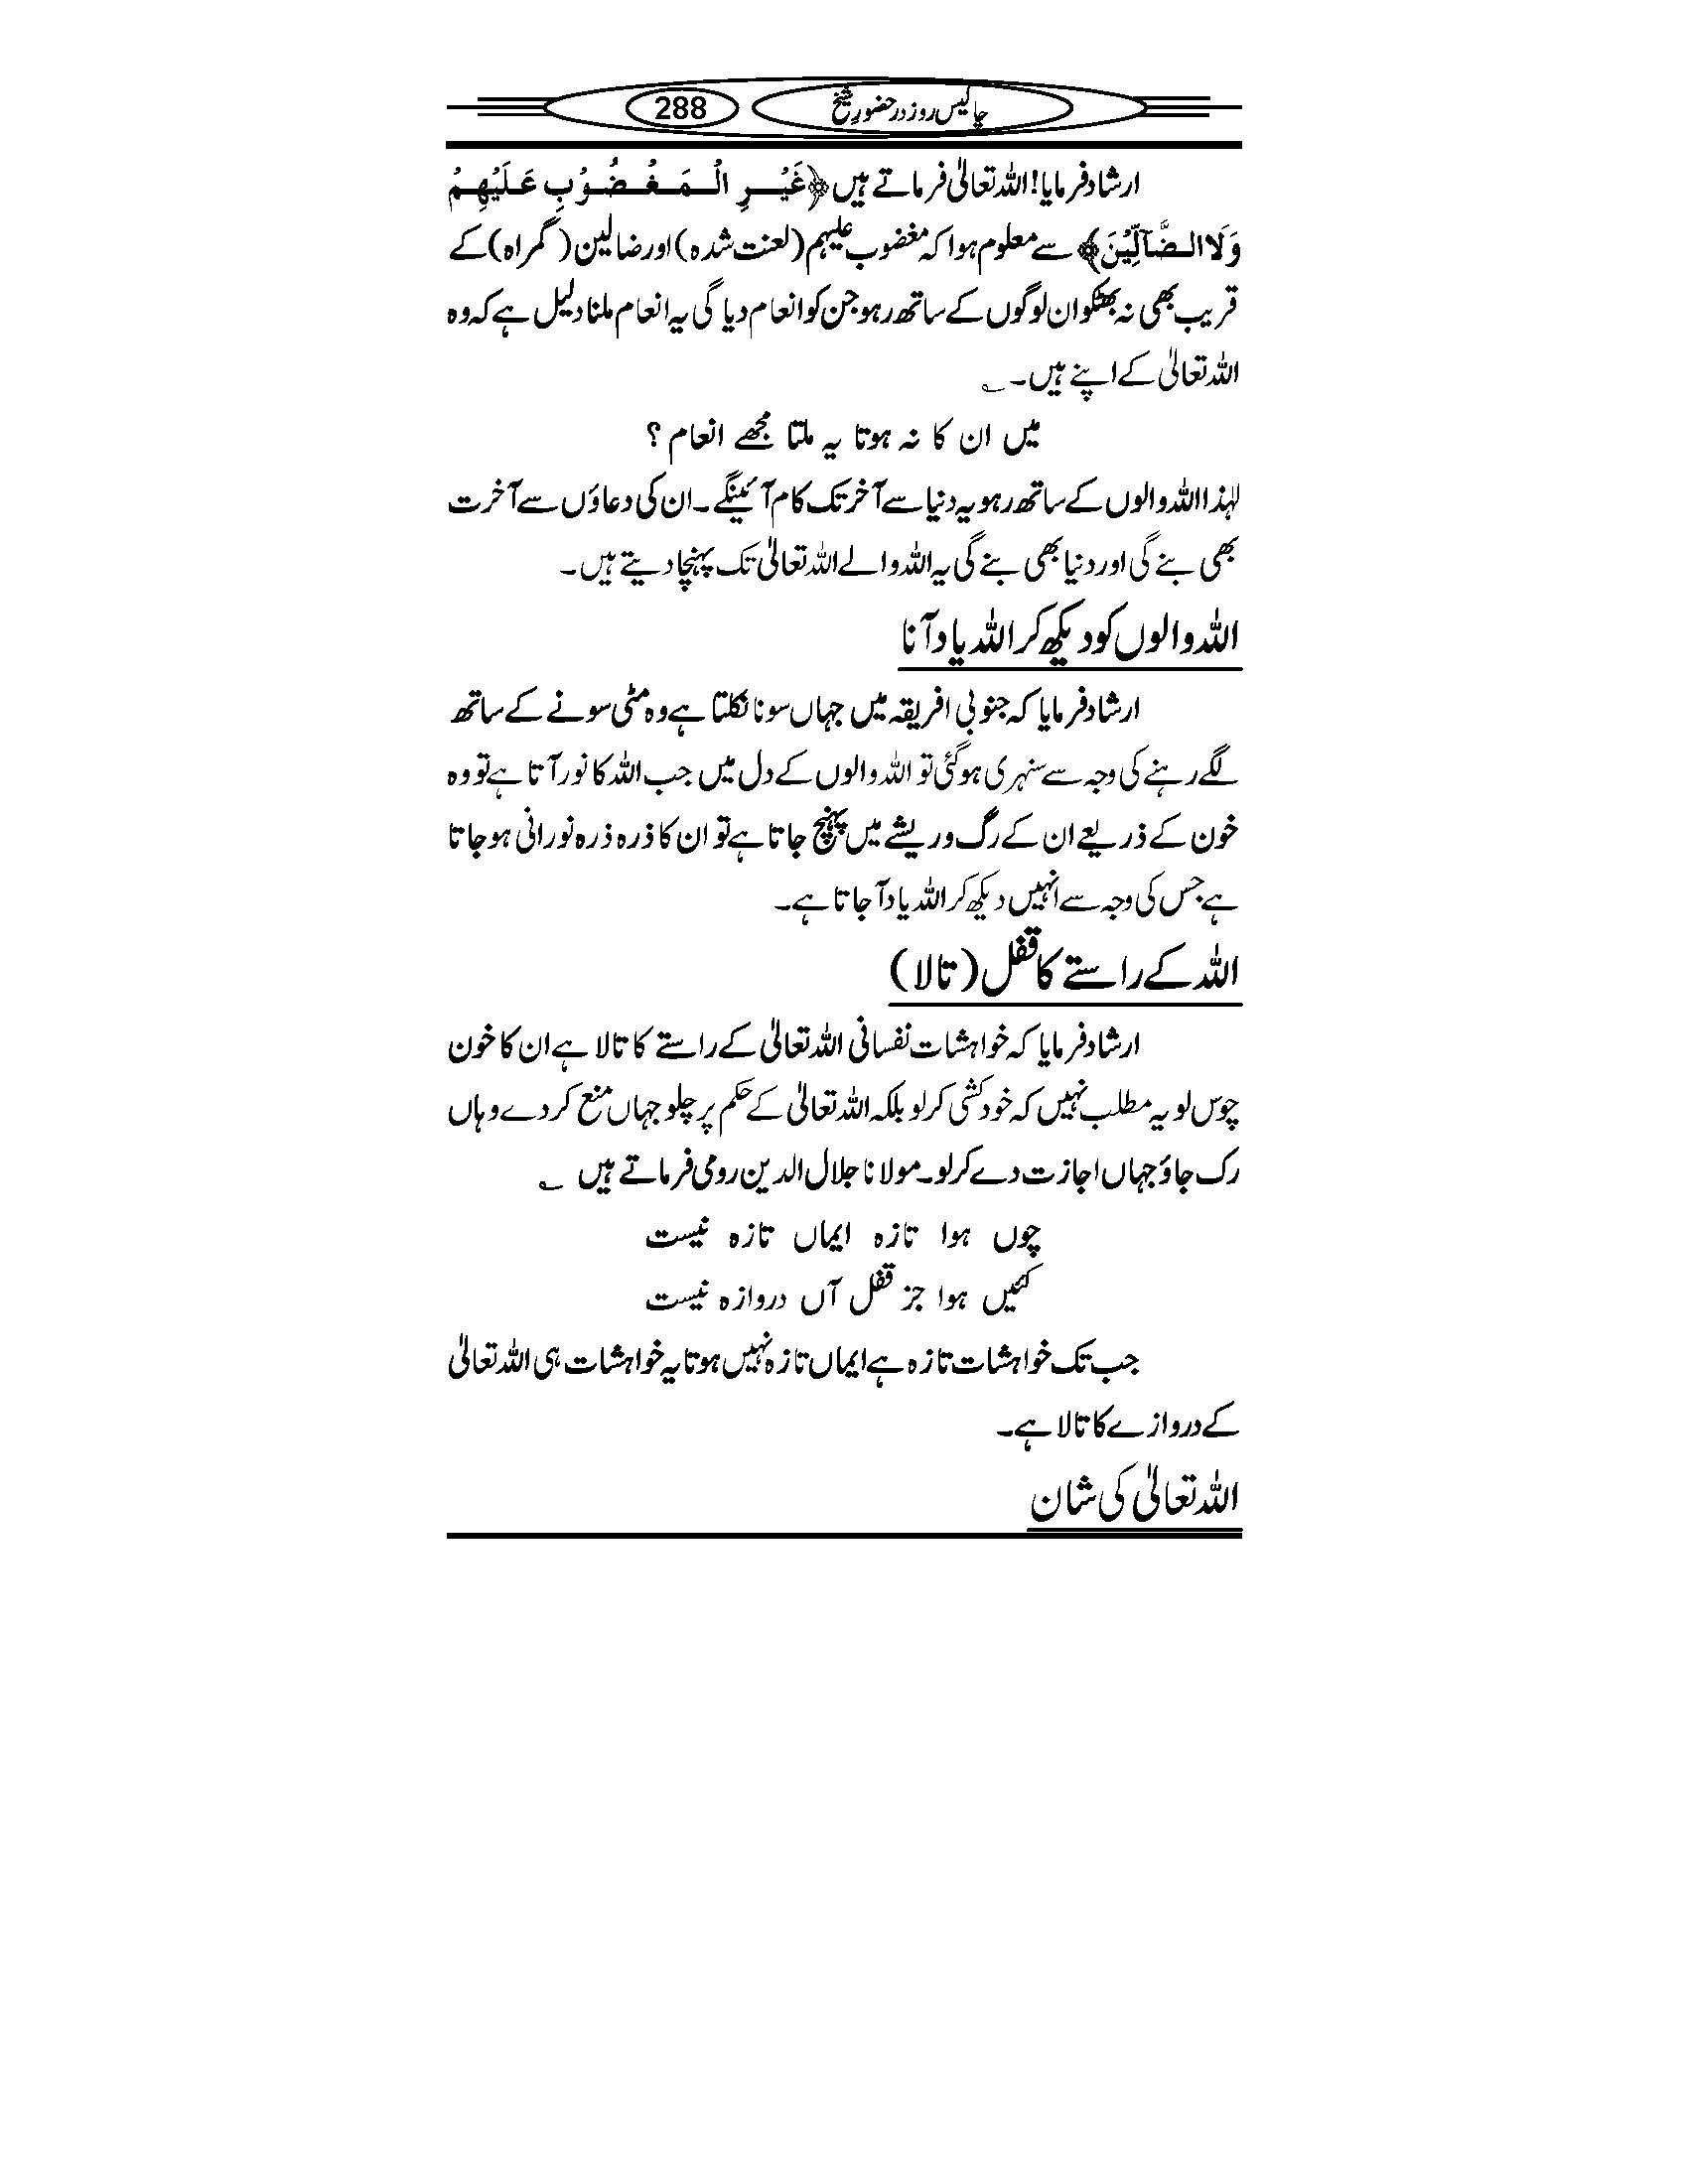 چالیس روز در حضورِ شیخ 288
ارشاد فرمایا! اللہ تعالیٰ فرماتے ہیں ﴿غَیْرِ الْمَغْضُوْبِ عَلَیْہِمْ
وَلَا الضَّآلِّیْنَ﴾ سے معلوم ہوا کہ مغضوب علیہم (لعنت شدہ) اور ضالین (گمراہ) کے
قریب بھی نہ بھٹکو ان لوگوں کے ساتھ رہو جن کو انعام دیا گی یہ انعام ملنا دلیل ہے کہ وہ
اللہ تعالیٰ کے اپنے ہیں۔ ؎
میں ان کا نہ ہوتا یہ ملتا مجھے انعام ؟
لہٰذا اللہ والوں کے ساتھ رہو یہ دنیا سے آخر تک کام آئینگے۔ ان کی دعاؤں سے آخرت
بھی بنے گی اور دنیا بھی بنے گی یہ اللہ والے اللہ تعالیٰ تک پہنچا دیتے ہیں۔
اللہ والوں کو دیکھ کر اللہ یاد آنا
ارشاد فرمایا کہ جنوبی افریقہ میں جہاں سونا نکلتا ہے وہ مٹی سونے کے ساتھ
لگے رہنے کی وجہ سے سنہری ہوگئی تو اللہ والوں کے دل میں جب اللہ کا نور آتا ہے تو وہ
خون کے ذریعے ان کے رگ وریشے میں پہنچ جاتا ہے تو ان کا ذرہ ذرہ نورانی ہو جاتا
ہے جس کی وجہ سے انہیں دیکھ کر اللہ یاد آجاتا ہے۔
اللہ کے راستے کا قفل (تالا)
ارشاد فرمایا کہ خواہشات نفسانی اللہ تعالیٰ کے راستے کا تالا ہے ان کا خون
چوس لو یہ مطلب نہیں کہ خودکشی کرلو بلکہ اللہ تعالیٰ کے حکم پر چلو جہاں منع کردے وہاں
رک جاؤ جہاں اجازت دے کرلو۔ مولانا جلال الدین رومی فرماتے ہیں ؎
چوں ہوا تازہ ایماں تازہ نیست
کئیں ہوا جز قفل آں دروازہ نیست
جب تک خواہشات تازہ ہے ایماں تازہ نہیں ہوتا یہ خواہشات ہی اللہ تعالیٰ
کے دروازے کا تالا ہے۔
اللہ تعالیٰ کی شان